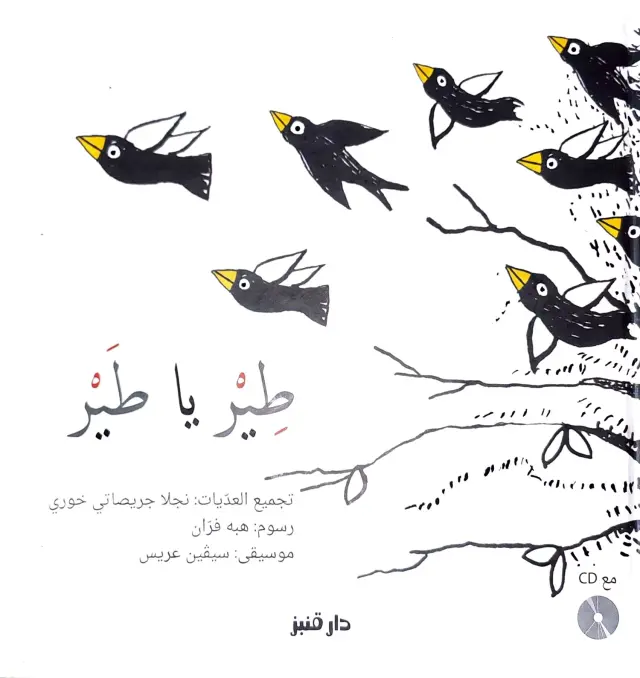 طِيْر يا طَيْر
تجميع العدّيات: نجلا جريصاتي خوري
رسوم: هبه فرّان
موسيقى: سيڤين عريس
مع CD
دار قنبز